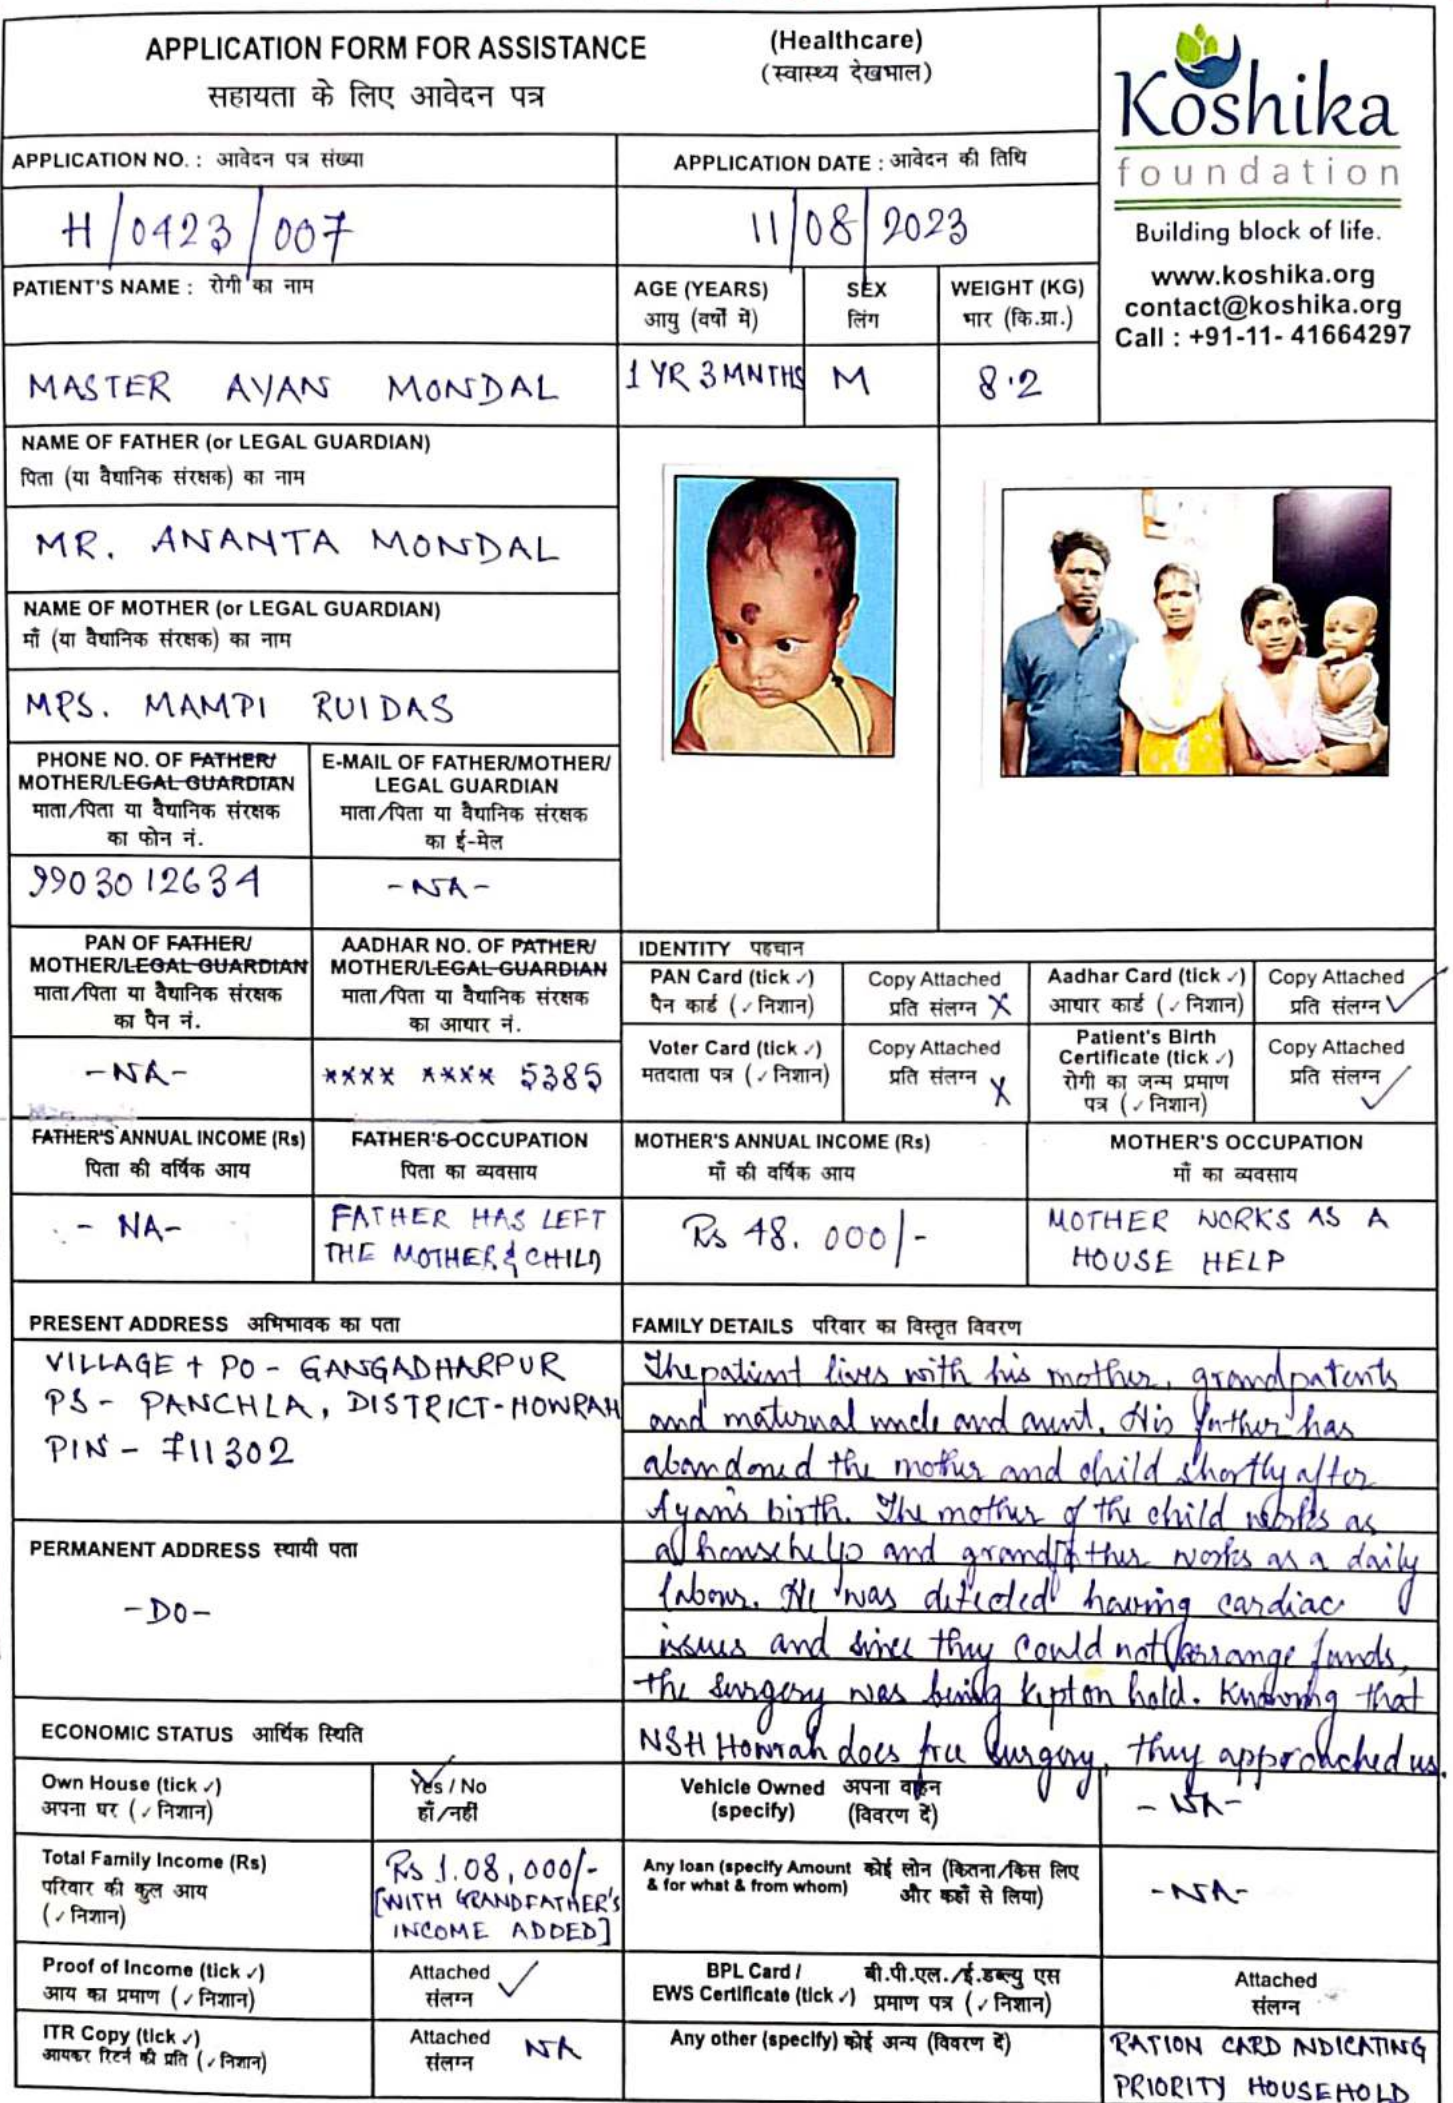 APPLICATION FORM FOR ASSISTANCE (Healthcare)
सहायता के लिए आवेदन पत्र (स्वास्थ्य देखभाल)
Koshika
foundation
Building block of life.
www.koshika.org
contact@koshika.org
Call : +91-11- 41664297
APPLICATION NO. : आवेदन पत्र संख्या
APPLICATION DATE : आवेदन की तिथि
H/0423/007
11/08/2023
PATIENT'S NAME : रोगी का नाम
AGE (YEARS)
आयु (वर्षों में)
SEX
लिंग
WEIGHT (KG)
भार (कि.ग्रा.)
MASTER AYAN MONDAL
1 YR 3 MNTHS
M
8.2
NAME OF FATHER (or LEGAL GUARDIAN)
पिता (या वैधानिक संरक्षक) का नाम
MR. ANANTA MONDAL
NAME OF MOTHER (or LEGAL GUARDIAN)
माँ (या वैधानिक संरक्षक) का नाम
MRS. MAMPI RUIDAS
PHONE NO. OF FATHER/
MOTHER/LEGAL GUARDIAN
माता/पिता या वैधानिक संरक्षक
का फोन नं.
E-MAIL OF FATHER/MOTHER/
LEGAL GUARDIAN
माता/पिता या वैधानिक संरक्षक
का ई-मेल
9903012634
-NA-
PAN OF FATHER/
MOTHER/LEGAL GUARDIAN
माता/पिता या वैधानिक संरक्षक
का पैन नं.
AADHAR NO. OF FATHER/
MOTHER/LEGAL GUARDIAN
माता/पिता या वैधानिक संरक्षक
का आधार नं.
-NA-
**** **** 5385
IDENTITY पहचान
PAN Card (tick ✓)
पैन कार्ड (✓ निशान)
Copy Attached
प्रति संलग्न X
Aadhar Card (tick ✓)
आधार कार्ड (✓ निशान)
Copy Attached
प्रति संलग्न ✓
Voter Card (tick ✓)
मतदाता पत्र (✓ निशान)
Copy Attached
प्रति संलग्न X
Patient's Birth
Certificate (tick ✓)
रोगी का जन्म प्रमाण
पत्र (✓ निशान)
Copy Attached
प्रति संलग्न ✓
FATHER'S ANNUAL INCOME (Rs)
पिता की वर्षिक आय
FATHER'S OCCUPATION
पिता का व्यवसाय
MOTHER'S ANNUAL INCOME (Rs)
माँ की वर्षिक आय
MOTHER'S OCCUPATION
माँ का व्यवसाय
- NA-
FATHER HAS LEFT
THE MOTHER & CHILD
Rs 48.000/-
MOTHER WORKS AS A
HOUSE HELP
PRESENT ADDRESS अभिभावक का पता
VILLAGE + PO - GANGADHARPUR
PS - PANCHLA, DISTRICT-HOWRAH
PIN - 711302
PERMANENT ADDRESS स्थायी पता
-DO-
FAMILY DETAILS परिवार का विस्तृत विवरण
The patient lives with his mother, grandpatents
and maternal uncle and aunt. His father has
abandoned the mother and child shortly after
Ayan's birth. The mother of the child works as
a househelp and grandfather works as a daily
labour. He was detected having cardiac
issues and since they could not arrange funds,
the surgery was being kept on hold. Knowing that
NSH Howrah does free surgery, they approached us.
ECONOMIC STATUS आर्थिक स्थिति
Own House (tick ✓)
अपना घर (✓ निशान)
Yes / No ✓
हाँ/नहीं
Vehicle Owned अपना वाहन
(specify) (विवरण दें)
- NA-
Total Family Income (Rs)
परिवार की कुल आय
(✓ निशान)
Rs 1.08,000/-
[WITH GRANDFATHER'S
INCOME ADDED]
Any loan (specify Amount कोई लोन (कितना/किस लिए
& for what & from whom) और कहाँ से लिया)
-NA-
Proof of Income (tick ✓)
आय का प्रमाण (✓ निशान)
Attached ✓
संलग्न
BPL Card / बी.पी.एल./ई.डब्ल्यु एस
EWS Certificate (tick ✓) प्रमाण पत्र (✓ निशान)
Attached
संलग्न
ITR Copy (tick ✓)
आयकर रिटर्न की प्रति (✓ निशान)
Attached NA
संलग्न
Any other (specify) कोई अन्य (विवरण दें)
RATION CARD INDICATING
PRIORITY HOUSEHOLD